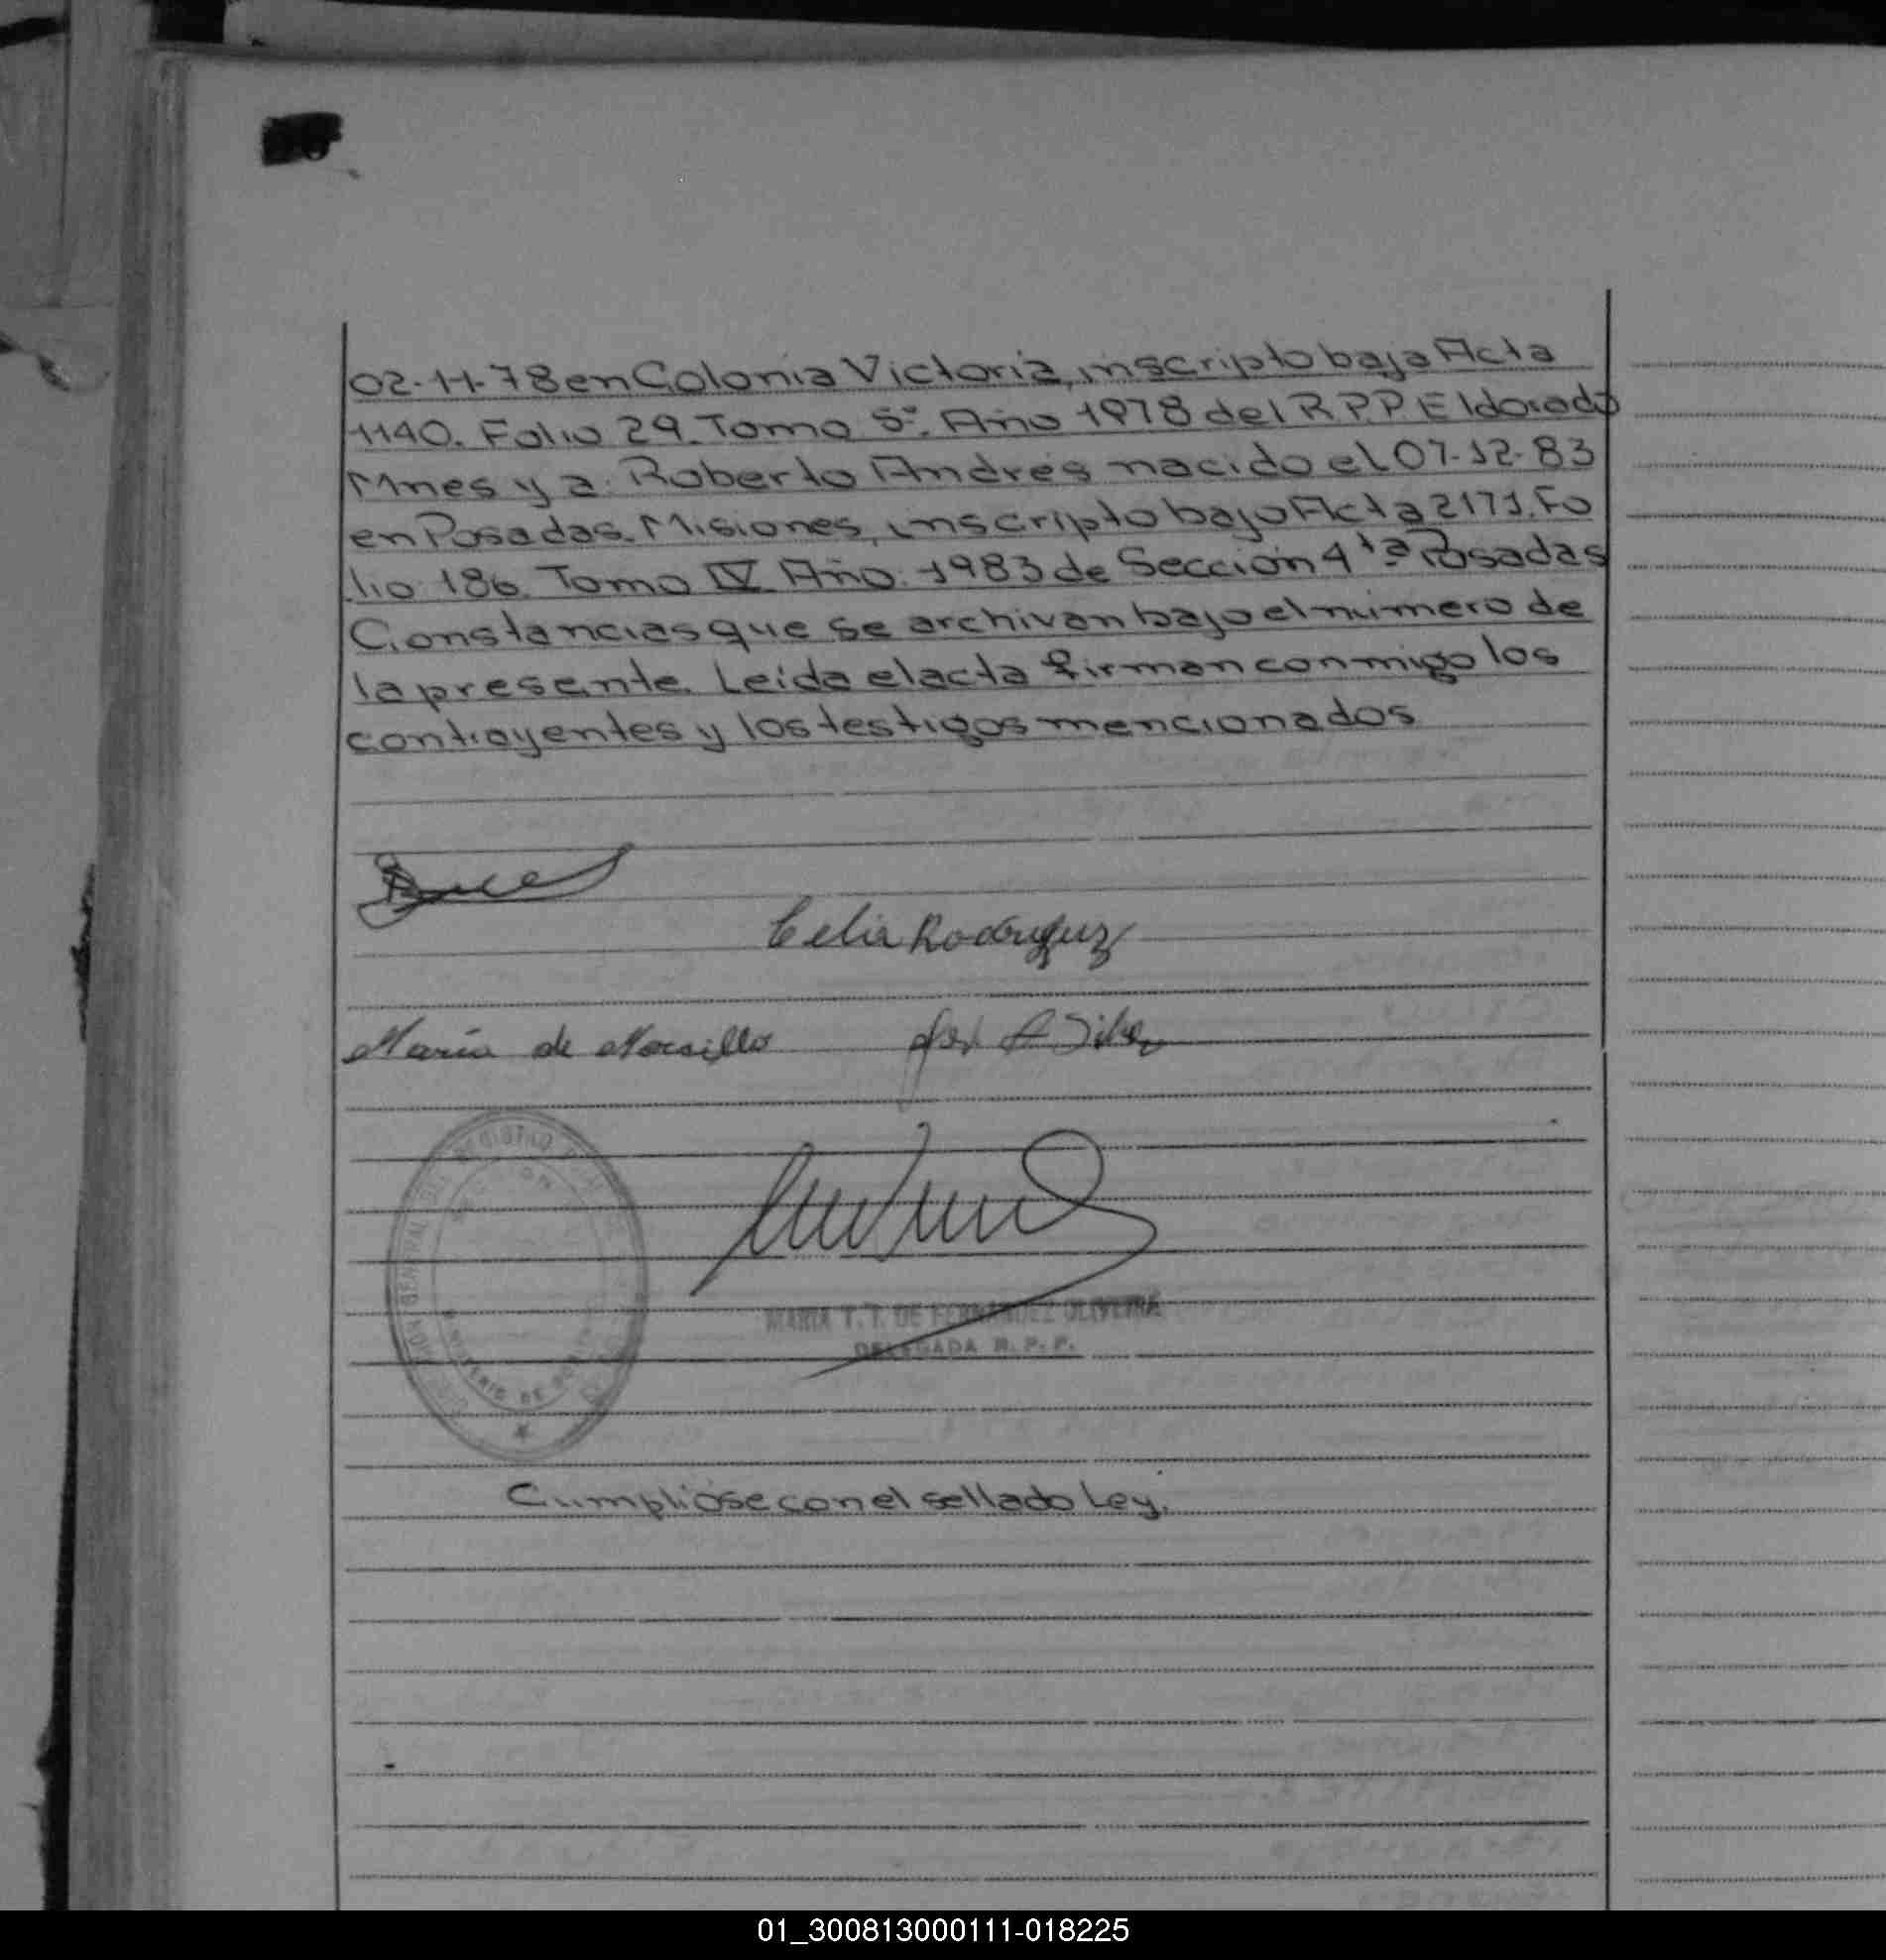 02-11-78 en Colonia Victoria, inscripto bajo Acta
1140. Folio 29. Tomo 5º. Año 1978 del R.P.P. Eldorado
Mnes y a: Roberto Andrés nacido el 07-12-83
en Posadas. Misiones, inscripto bajo Acta 2171. Fo
lio 186. Tomo IV Año: 1983 de Sección 4ta Posadas
Constancias que se archivan bajo el número de
la presente. Leida el acta firman conmigo los
contrayentes y los testigos mencionados
Celia Rodriguez
María de
MARIA T. T. DE FERNANDEZ OLIVEIRA
DELEGADA R. P. P.
Cumpliose con el sellado Ley.
01_300813000111-018225